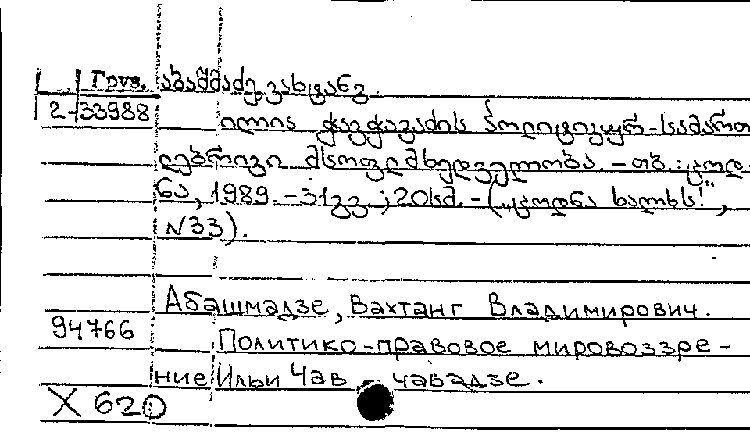 Груз. აბაშმაძე, ვახტანგ.
2-33988 ილია ჭავჭავაძის პოლიტიკურ-სამართ
ლებრივი მსოფლმხედველობა. - თბ. : ცოდ-
ნა, 1989. - 31გვ. ; 20სმ. - („ცოდნა ხალხს!",
N33).
Абашмадзе, Вахтанг Владимирович.
94766 Политико-правовое мировоззре-
ние Ильи Чавчавадзе.
X 620